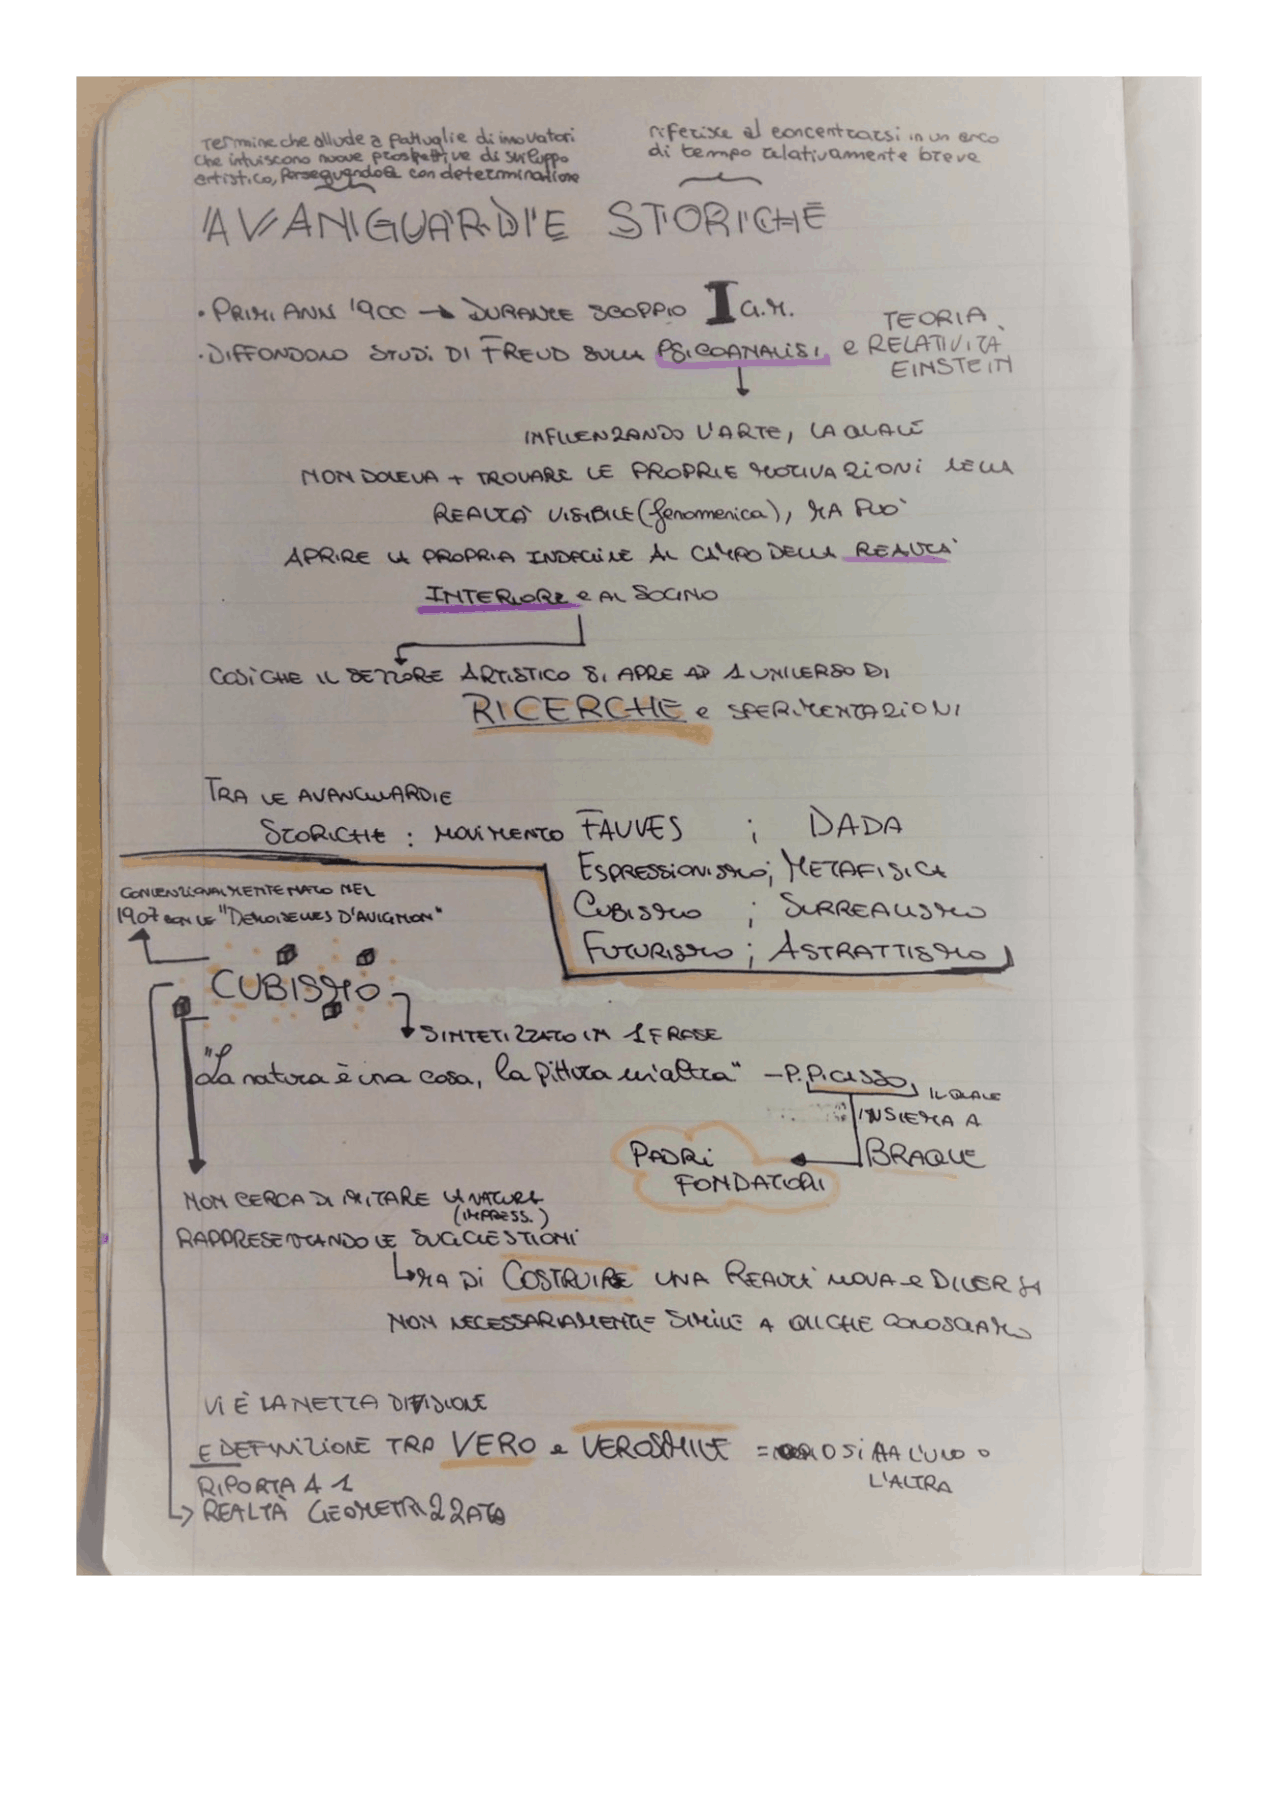 Termine che allude a pattuglie di innovatori
che intuiscono nuove prospettive di sviluppo
artistico, perseguendole con determinazione
riferisce al concentrarsi in un arco
di tempo relativamente breve
AVANGUARDIE STORICHE
• PRIMI ANN '900 → DURANTE SCOPPIO I G.M.
• DIFFONDONO STUDI DI FREUD SULLA PSICOANALISI e TEORIA
RELATIVITÀ
EINSTEIN
INFLUENZANDO L'ARTE, LA QUALE
NON DOVEVA + TROVARE LE PROPRIE MOTIVAZIONI NELLA
REALTÀ VISIBILE (fenomenica), MA PUÒ
APRIRE LA PROPRIA INDAGINE AL CAMPO DELLA REALTÀ
INTERIORE e AL SOGNO
COSÌ CHE IL SETTORE ARTISTICO SI APRE AD 1 UNIVERSO DI
RICERCHE e SPERIMENTAZIONI
TRA LE AVANGUARDIE
STORICHE : MOVIMENTO FAUVES ; DADA
ESPRESSIONISMO; METAFISICA
CUBISMO ; SURREALISMO
FUTURISMO ; ASTRATTISMO
CONVENZIONALMENTE NATO NEL
1907 CON LE "DEMOISELLES D'AVIGNON"
CUBISMO
SINTETIZZATO IN 1 FRASE
"La natura è una cosa, la pittura un'altra" – P. PICASSO, IL QUALE
INSIEMA A
BRAQUE
PADRI
FONDATORI
NON CERCA DI IMITARE LA NATURA
(IMPRESS.)
RAPPRESENTANDO LE SUGGESTIONI
MA DI COSTRUIRE UNA REALTÀ NUOVA e DIVERSA
NON NECESSARIAMENTE SIMILE A QLL CHE CONOSCIAMO
VI È LA NETTA DIVISIONE
E DEFINIZIONE TRA VERO e VEROSIMILE = O SI HA L'UNO O
L'ALTRA
RIPORTA A 1
REALTÀ GEOMETRIZZATA